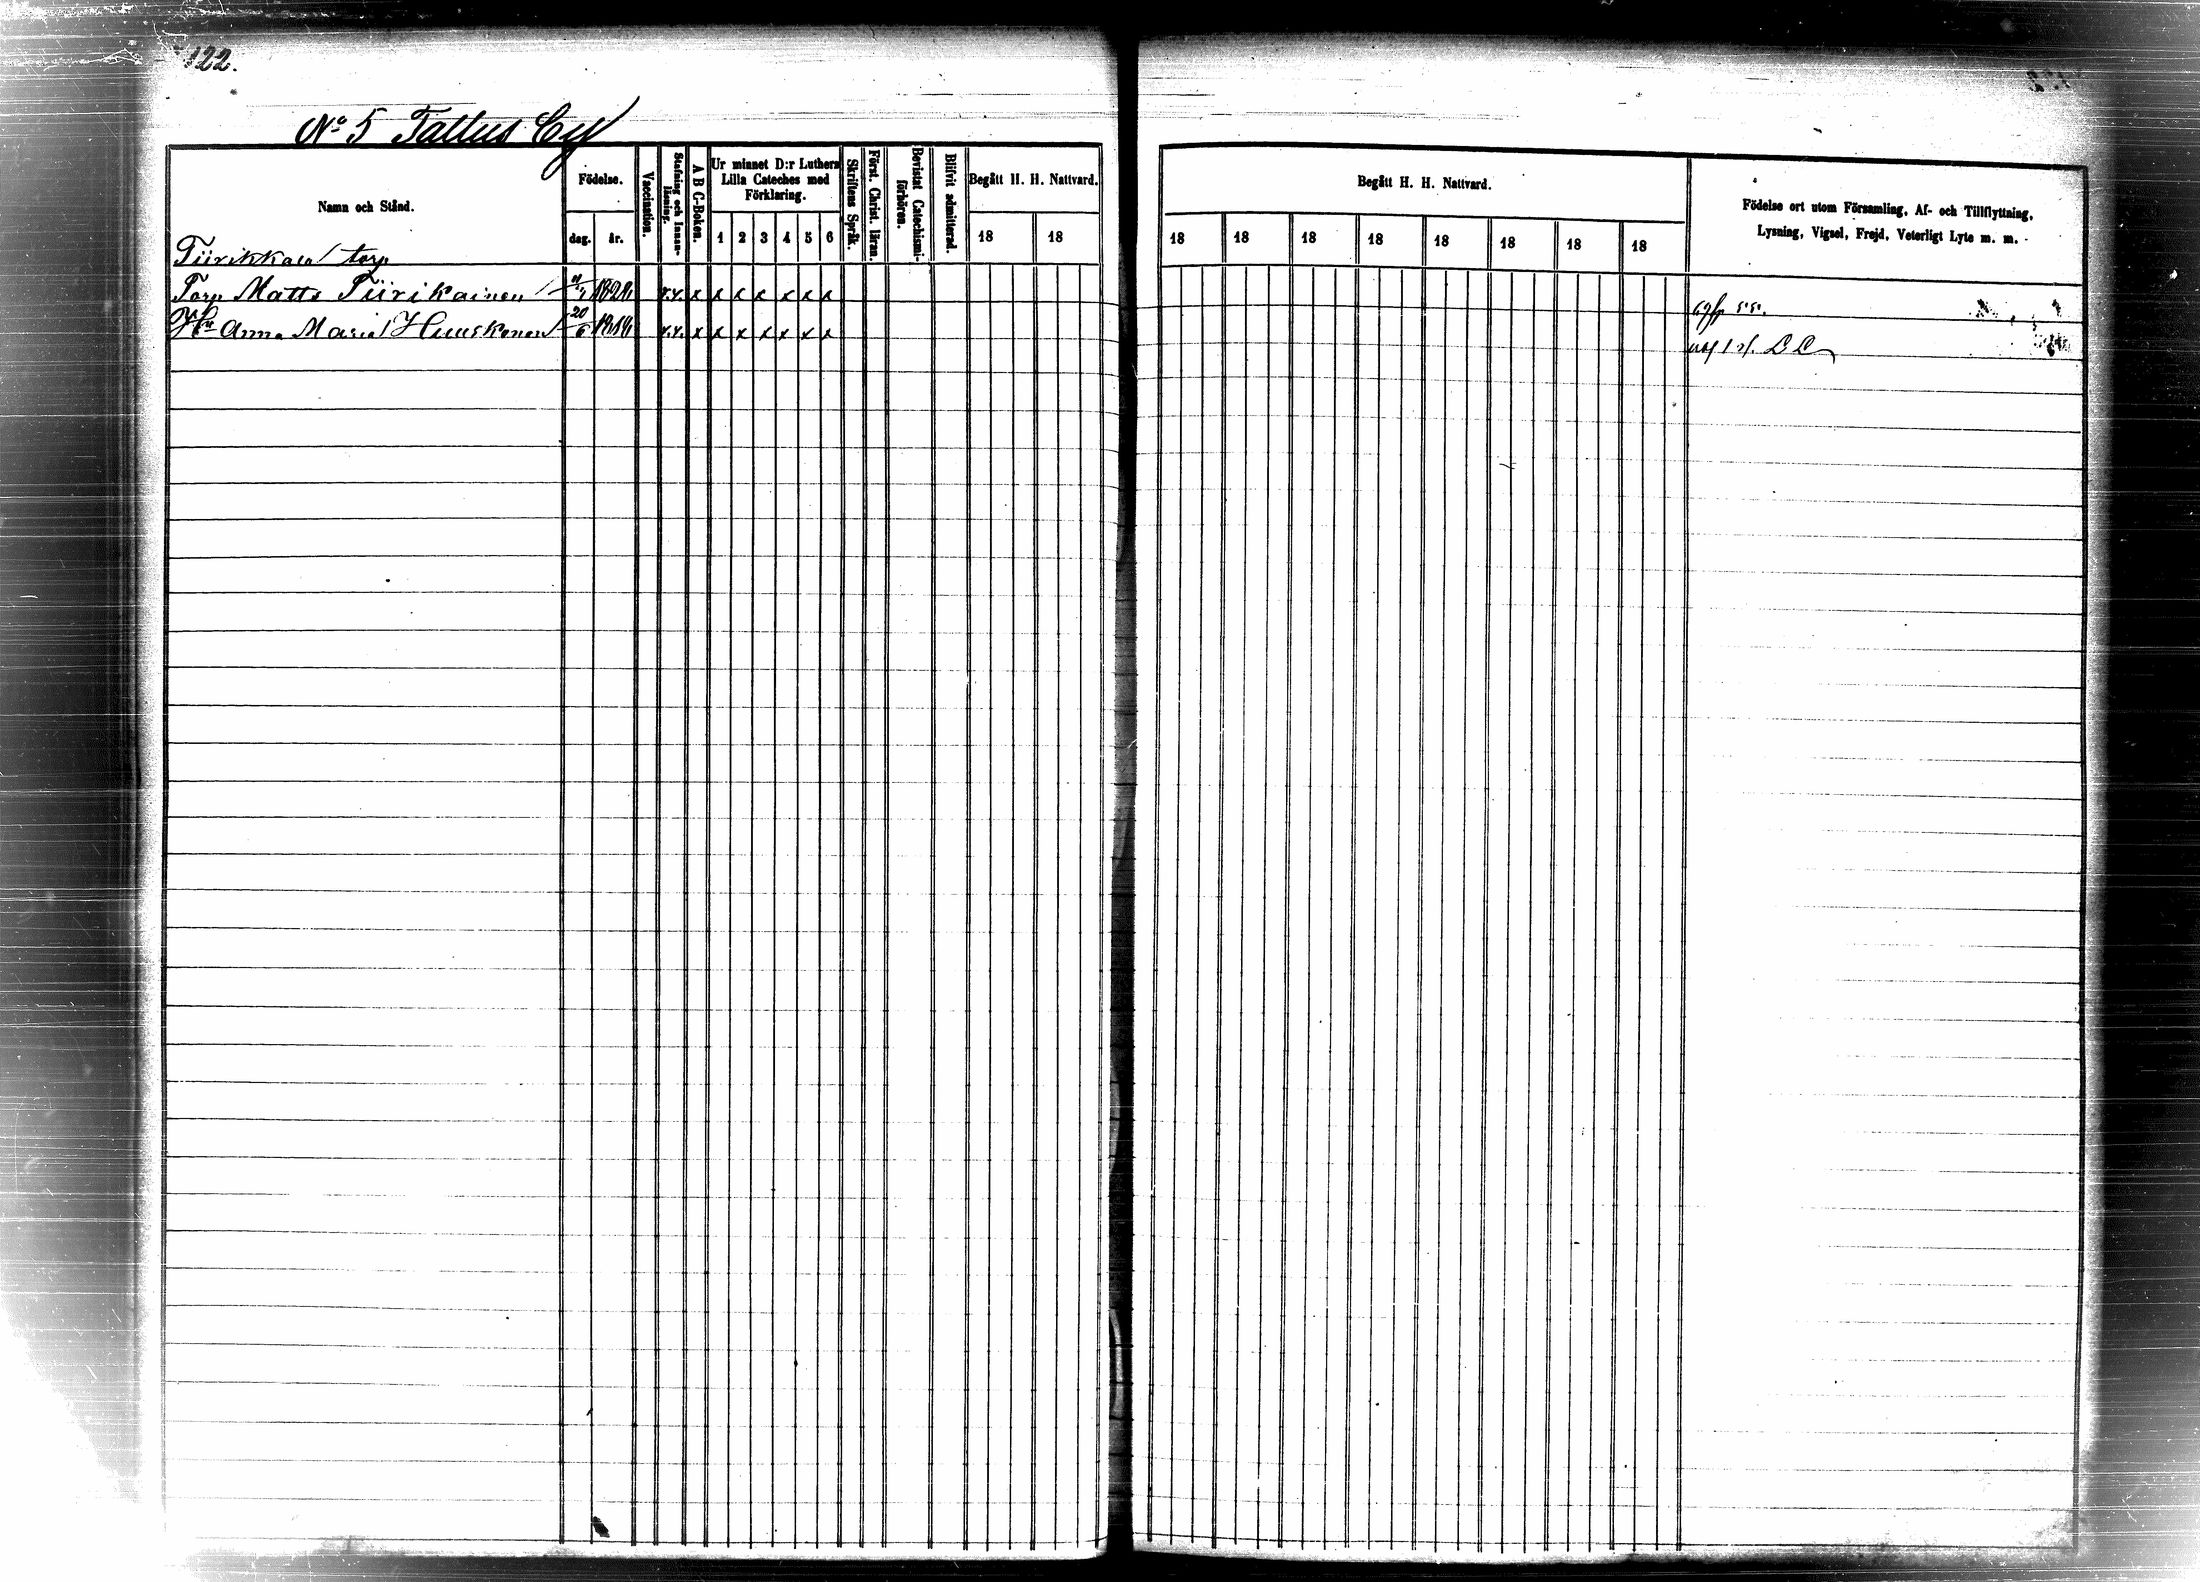 122.
No 5 Tallus By
Namn och Stånd.
Födelse.
dag.
år.
Vaccination.
Stafning och Innanläsning.
A B C-Boken.
Ur minnet D:r Luthers Lilla Cateches med Förklaring.
1 2 3 4 5 6
Skriftens Språk.
Först. Christ. läran.
Bevistat Catechismiförhören.
Blifvit admitterad.
Begått H. H. Nattvard.
18 18
Begått H. H. Nattvard.
18 18 18 18 18 18 18 18
Födelse ort utom Församling, Af- och Tillflyttning,
Lysning, Vigsel, Frejd, Veterligt Lyte m. m.
Tiirikkala torp
Torp Matts Tiirikainen 1821 x x x x x x x
Hu Anna Maria Huuskonen 20/6 1819 x x x x x x x